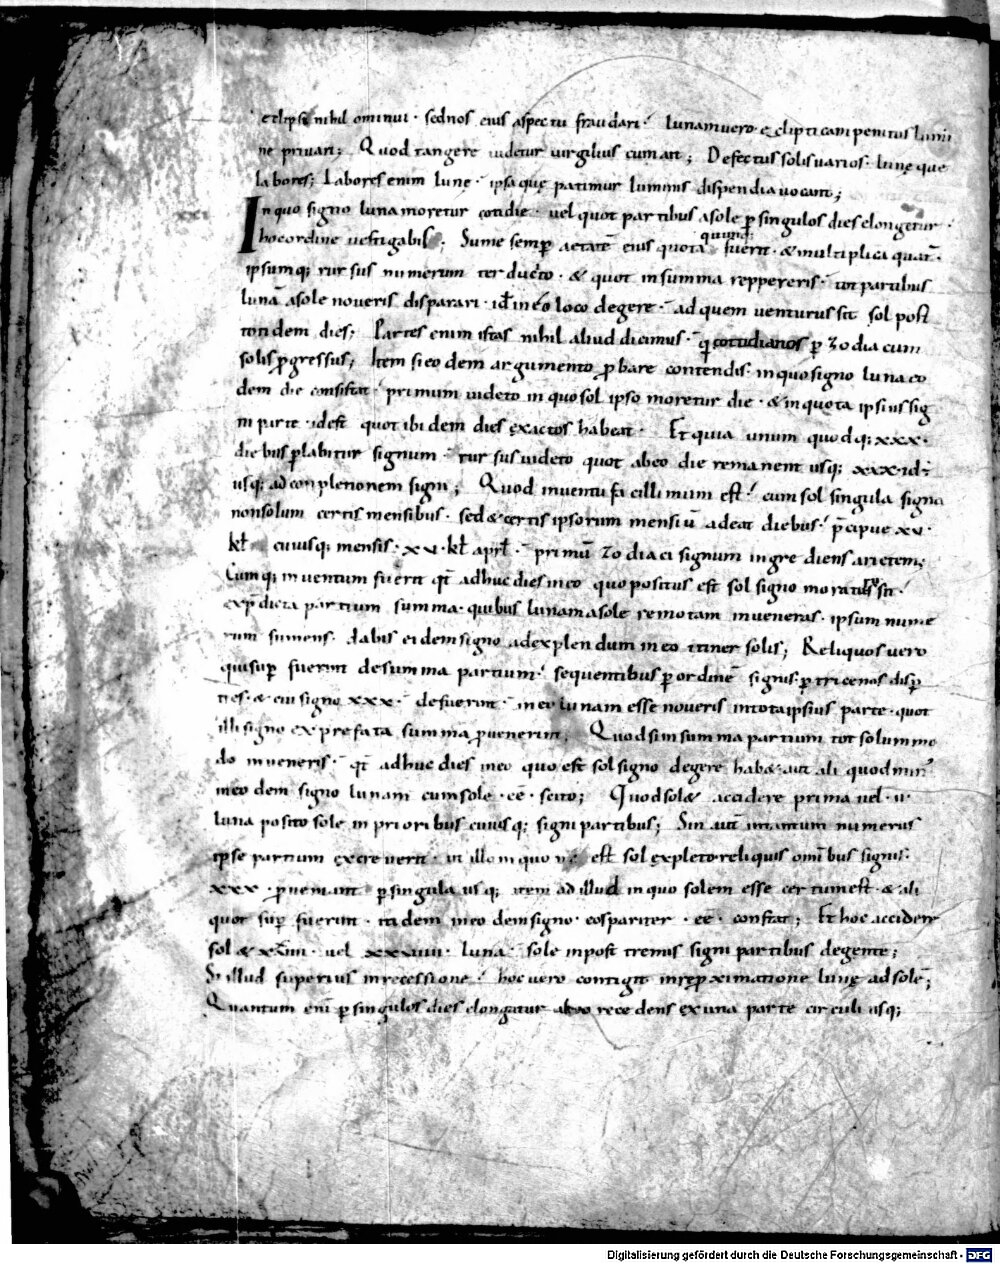 eclipsi nihil ominui · sed nos eius aspectu fraudari; lunam uero eclipticam penitus lumi
ne priuari; Quod tangere uidetur uirgilius cum ait; Defectus solis uarios · lunęque
labores; Labores enim lunę · ipsa quę patimur luminis dispendia uocans;
In quo signo luna moretur cotidie · uel quot partibus a sole ꝑ singulos dies elongetur ·
hoc ordine uestigabis; Sume semꝑ aetatē eius quota fuerit · & multiplica quat̄ ·
ipsumq; rursus numerum ter ducito · & quot in summa reppereris · tot partibus
lunā a sole noueris disparari · id in eo loco degere · ad quem venturus sit sol post
totidem dies; Partes enim istas nihil aliud dicimus · q̄ cotudianos ꝑ zodiacum
solis ꝓgressus; Item si eodem argumento ꝓbare contendis · in quo signo luna eo
dem die consistat · primum uideto in quo sol ipso moretur die · & in quota ipsius sig
ni parte · id est quot ibidem dies exactos habeat · Et quia unum quodq; xxx ·
diebus ꝑlabitur signum · rursus uideto quot ab eo die remanent usq; xxx · id ÷
usq; ad conpletionem signi; Quod inuentu facillimum est · cum sol singula signa
non solum certis mensibus · sed & certis ipsorum mensiū adeat diebus · p̄cipue xv ·
kł cuiusq; mensis · xv · kł apr̄l · primū zodiaci signum ingrediens arietem;
Cumq; inuentum fuerit qt̄ adhuc dies in eo quo positus est sol signo moraturus sit ·
ex p̄dicta partium summa · quibus lunam a sole remotam inueneras · ipsum nume
rum sumens · dabis eidem signo ad explendum in eo itiner solis; Reliquos uero
qui suꝑfuerint de summa partium · sequentibus ꝑ ordinē signis · ꝑ tricenos disꝑ
ties · & cui signo xxx · defuerint · in eo lunam esse noueris in tota ipsius parte · quot
illi signo ex prefata summa ꝓuenerint; Quod si in summa partium tot solummo
do inueneris · qt̄ adhuc dies in eo quo est sol signo degere habeat aut aliquod min᷒
in eodem signo lunam cum sole · eē · scito; Quod solet accidere prima uel · ii ·
luna posito sole in prioribus cuiusq; signi partibus; Sin aut̄ in tantum numerus
ipse partium excreuerit · ut illo in quo est sol expleto reliquis omībus signis ·
xxx · ꝓueniant ꝑ singula usq; item ad illud in quo solem esse certum est · & ali
quot suꝑfuerint · itidem in eodem signo · eos pariter · eē · constat; Et hoc accidere
sol & luna · sole in postremis signi partibus degente;
Si illud superius in recessione · hoc uero contigit in reꝓximatione lunę ad solē;
Quantum enī ꝑ singulos dies elongatur ab eo recedens ex una parte circuli usq;
quum;
Digitalisierung gefördert durch die Deutsche Forschungsgemeinschaft · DFG